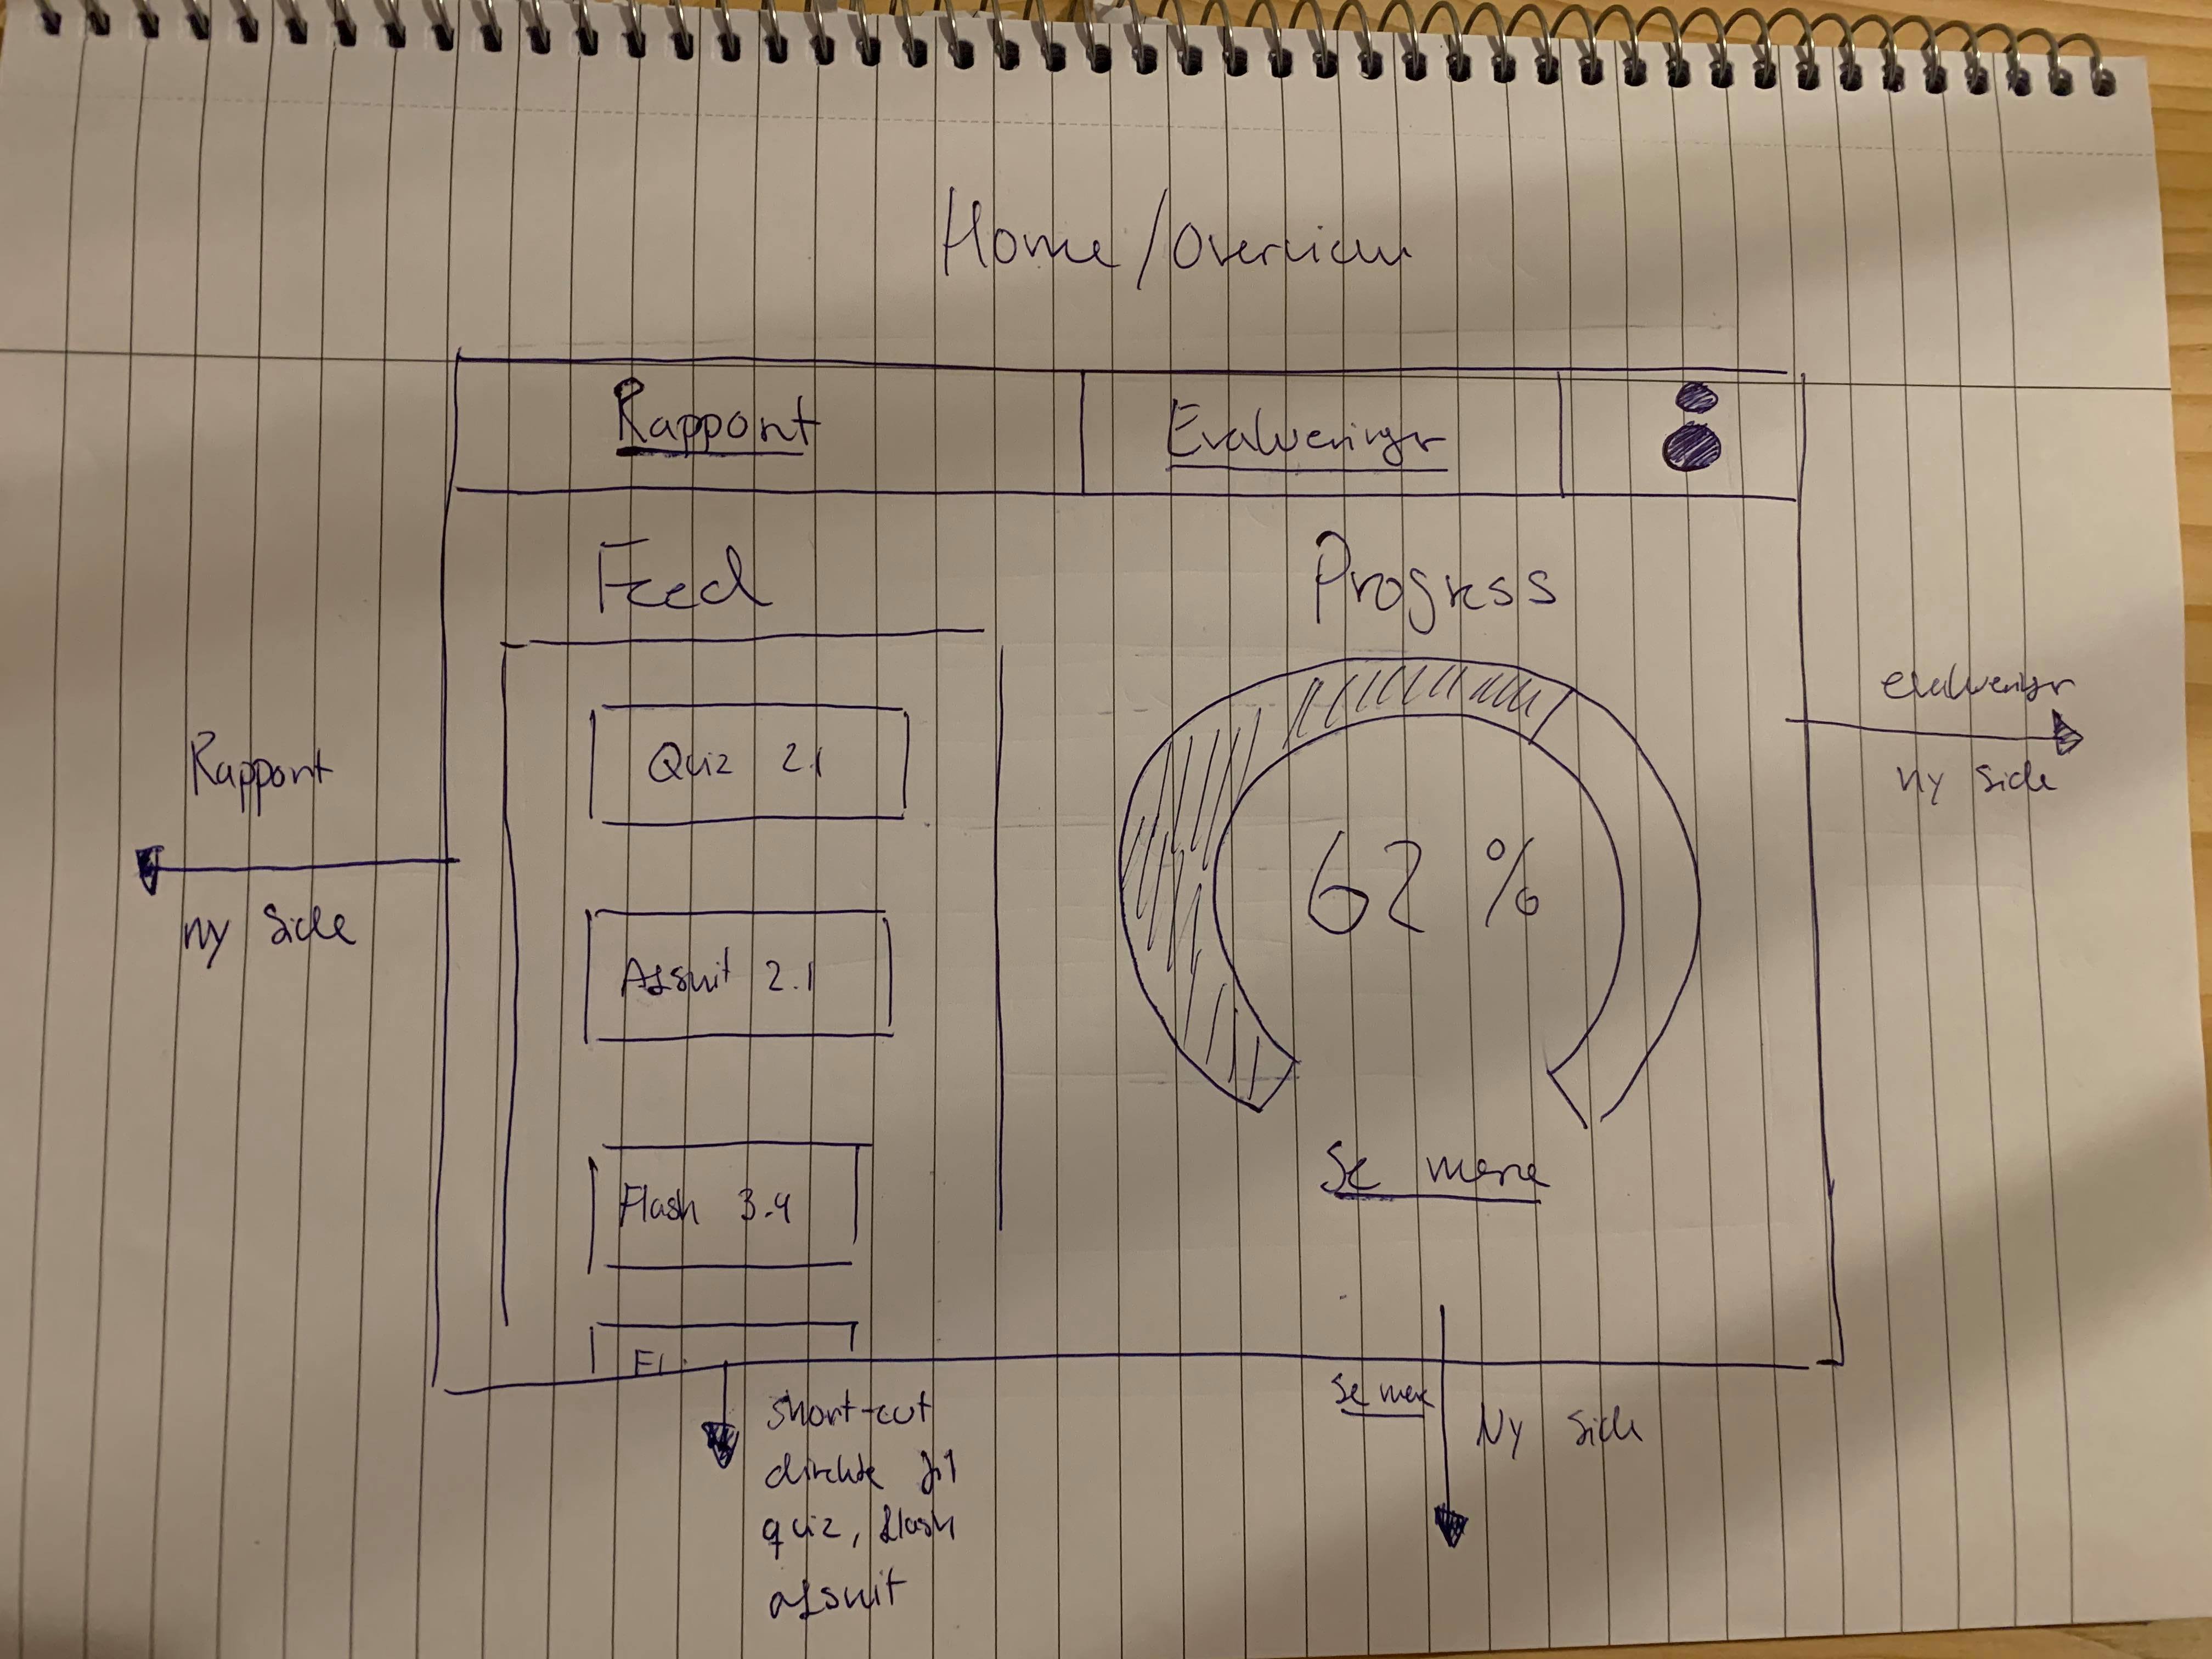 Home/Overview
Rapport
Evalueringer
Feed
Progress
Quiz 2.1
Afsnit 2.1
Flash 3.4
Fl.
62 %
Se mere
Rapport
ny side
evalueringer
ny side
short-cut
direkte til
quiz, flash
afsnit
Se mere
Ny side